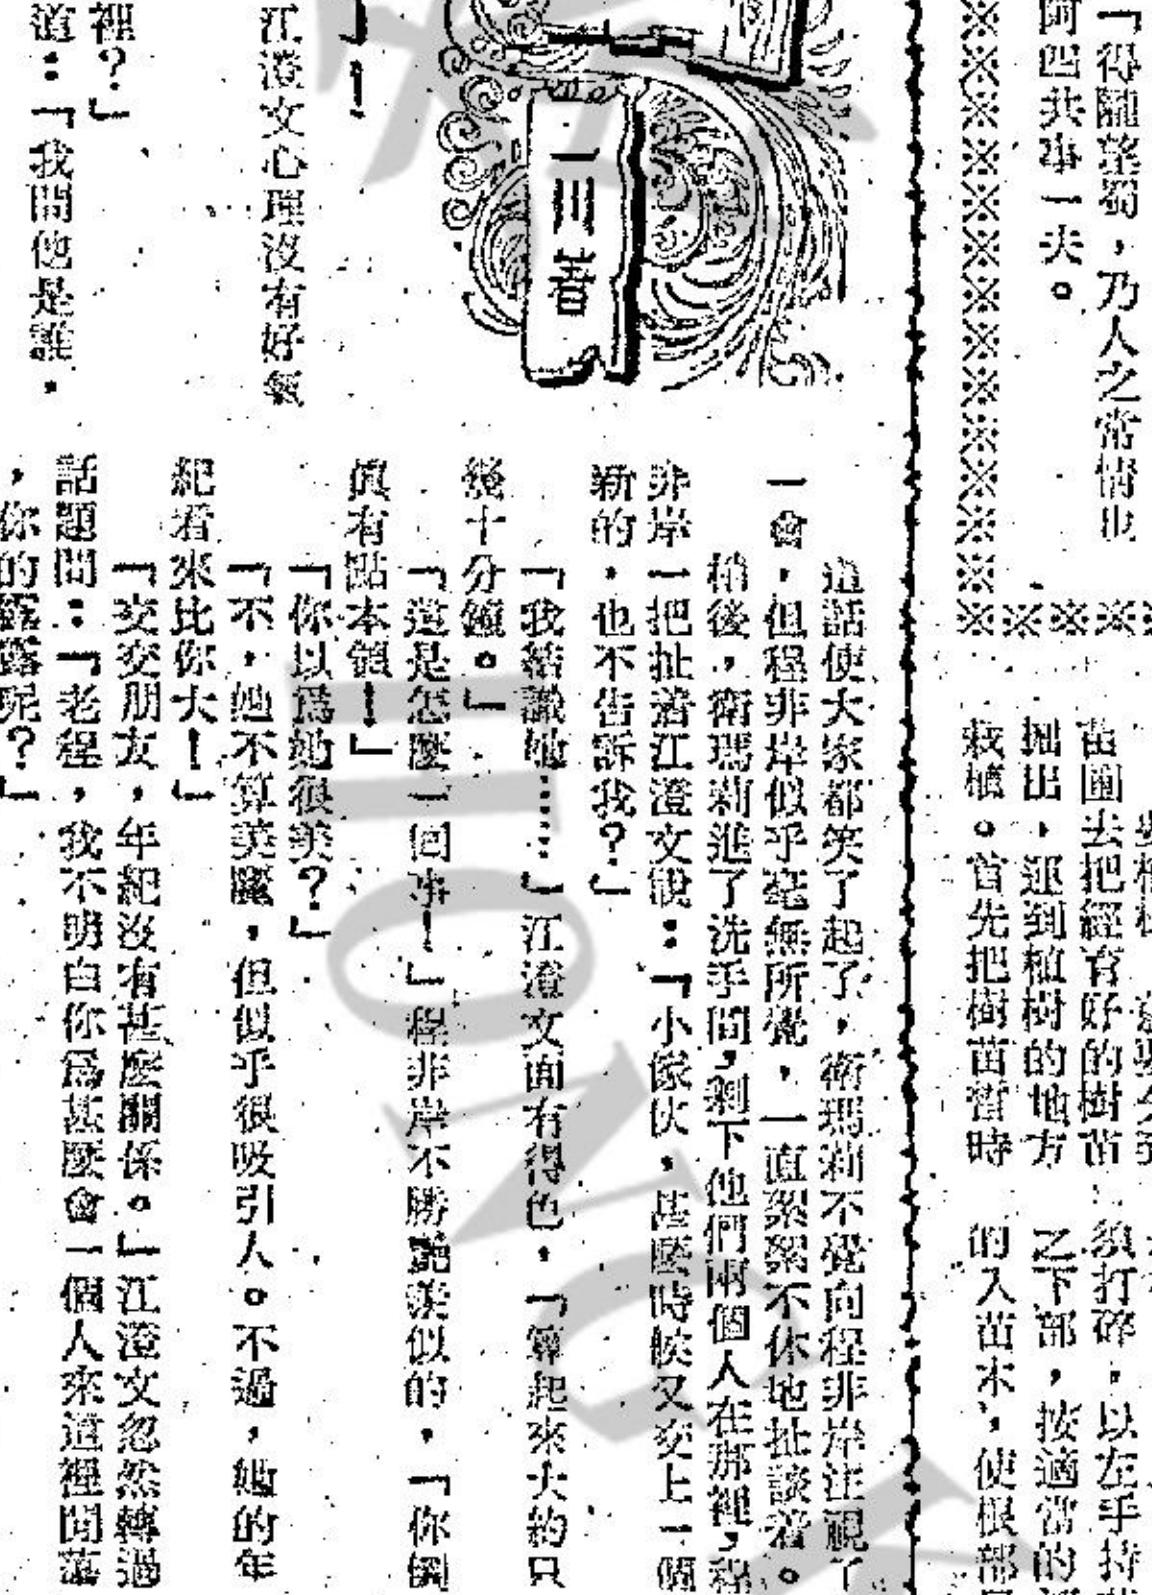 「得隴望蜀，乃人之常情也
阿四共事一夫。
苗圃去把經育好的樹苗
掘出，運到植樹的地方
栽植。首先把樹苗當時
須打碎，以左手持
之下部，按適當的
的入苗木，使根部
一川著
」！
江澄文心理沒有好氣
裡？」
道：「我問他是誰，
這話使大家都笑了起了，衛瑪莉不覺向程非岸注視了
一會，但程非岸似乎毫無所覺，一直絮絮不休地扯談着。
稍後，衛瑪莉進了洗手間，剩下他們兩個人在那裡，程
非岸一把扯着江澄文說：「小傢伙，甚麼時候又交上一個
新的，也不告訴我？」
「我結識她……」江澄文面有得色，「算起來大約只
幾十分鐘。」
「這是怎麼一回事！」程非岸不勝艷羨似的，「你倒
眞有點本領！」
「你以爲她很美？」
「不，她不算美麗，但似乎很吸引人。不過，她的年
紀看來比你大！」
「交交朋友，年紀沒有甚麼關係。」江澄文忽然轉過
話題問：「老程，我不明白你爲甚麼會一個人來這裡閒蕩
，你的露露呢？」
HONG